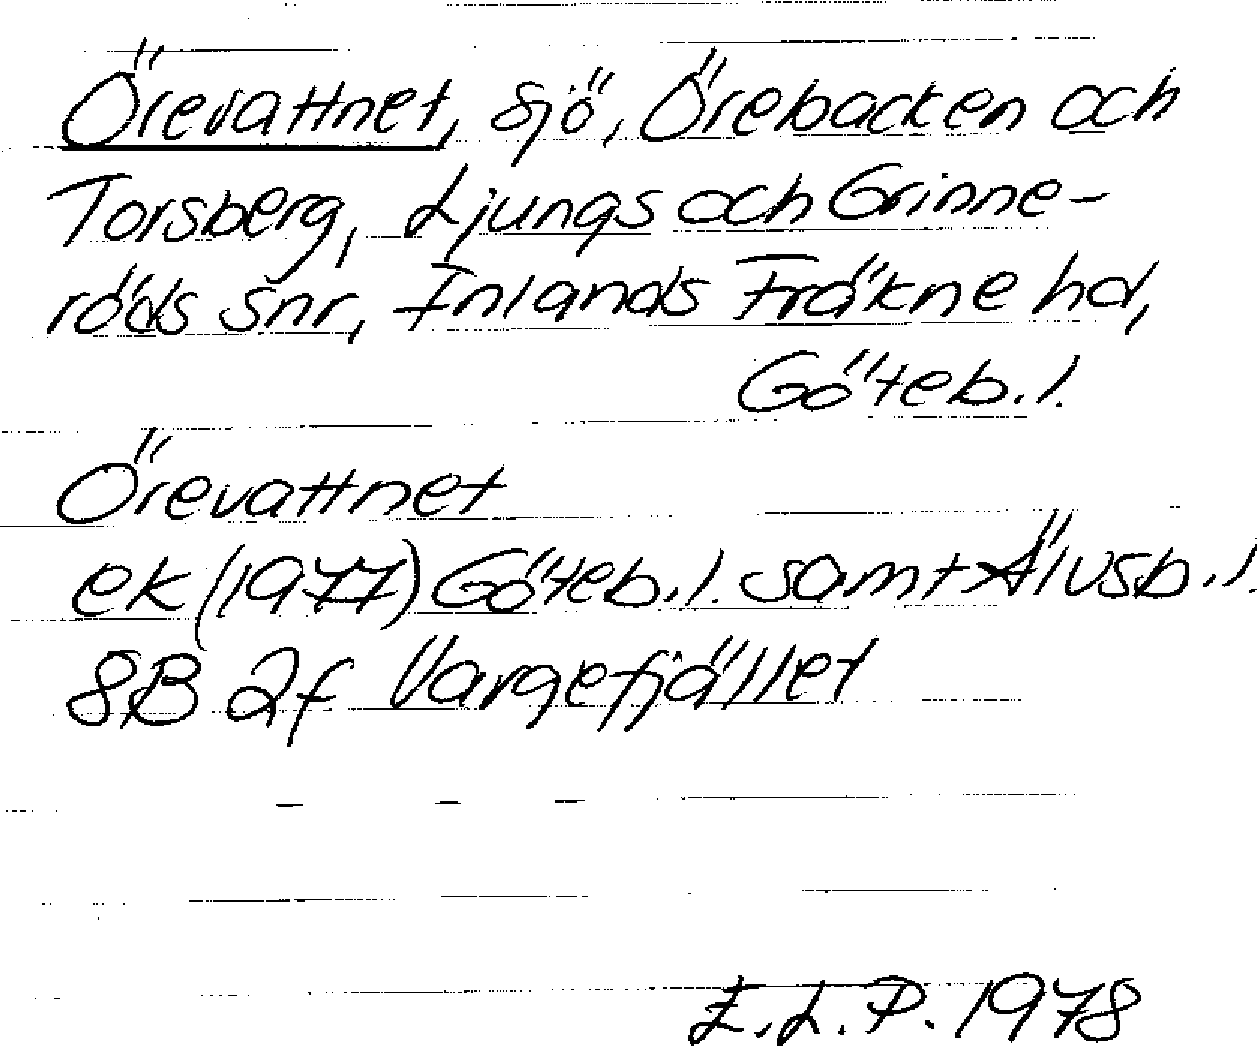 Örevattnet, sjö, Örebacken och
Torsberg, Ljungs och Grinne-
röds snr, Inlands Fräkne hd,
Göteb. l.
Örevattnet
ek (1977) Göteb. l. samt Älvsb. l.
8B 2f Vargefjället
E. L. P. 1978